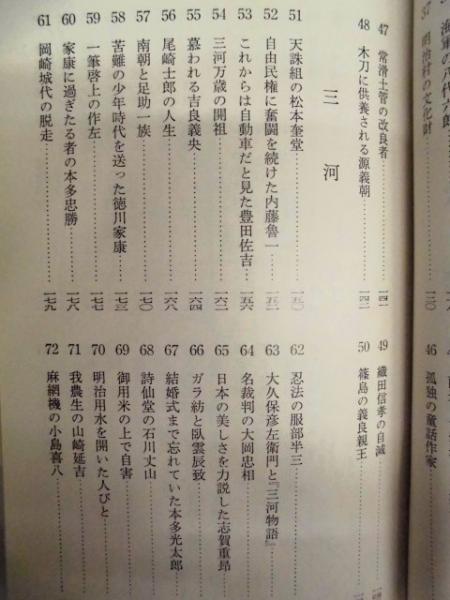 海軍の八代六郎
37 明治村の文化財
46 孤独の童話作家
47 常滑土管の改良者……一四一
48 木刀に供養される源義朝……一四二
49 織田信孝の自滅
50 篠島の義良親王
三河
51 天誅組の松本奎堂……一五〇
52 自由民権に奮闘を続けた内藤魯一……一五二
53 これからは自動車だと見た豊田佐吉……一五六
54 三河万歳の開祖……一六二
55 慕われる吉良義央……一六四
56 尾崎士郎の人生……一六八
57 南朝と足助一族……一七〇
58 苦難の少年時代を送った徳川家康……一七三
59 一筆啓上の作左……一七七
60 家康に過ぎたる者の本多忠勝……一七八
61 岡崎城代の脱走……一七九
62 忍法の服部半三
63 大久保彦左衛門と『三河物語』
64 名裁判の大岡忠相
65 日本の美しさを力説した志賀重昂
66 ガラ紡と臥雲辰致
67 結婚式まで忘れていた本多光太郎
68 詩仙堂の石川丈山
69 御用米の上で自害
70 明治用水を開いた人びと
71 我農生の山崎延吉
72 麻網機の小島喜八